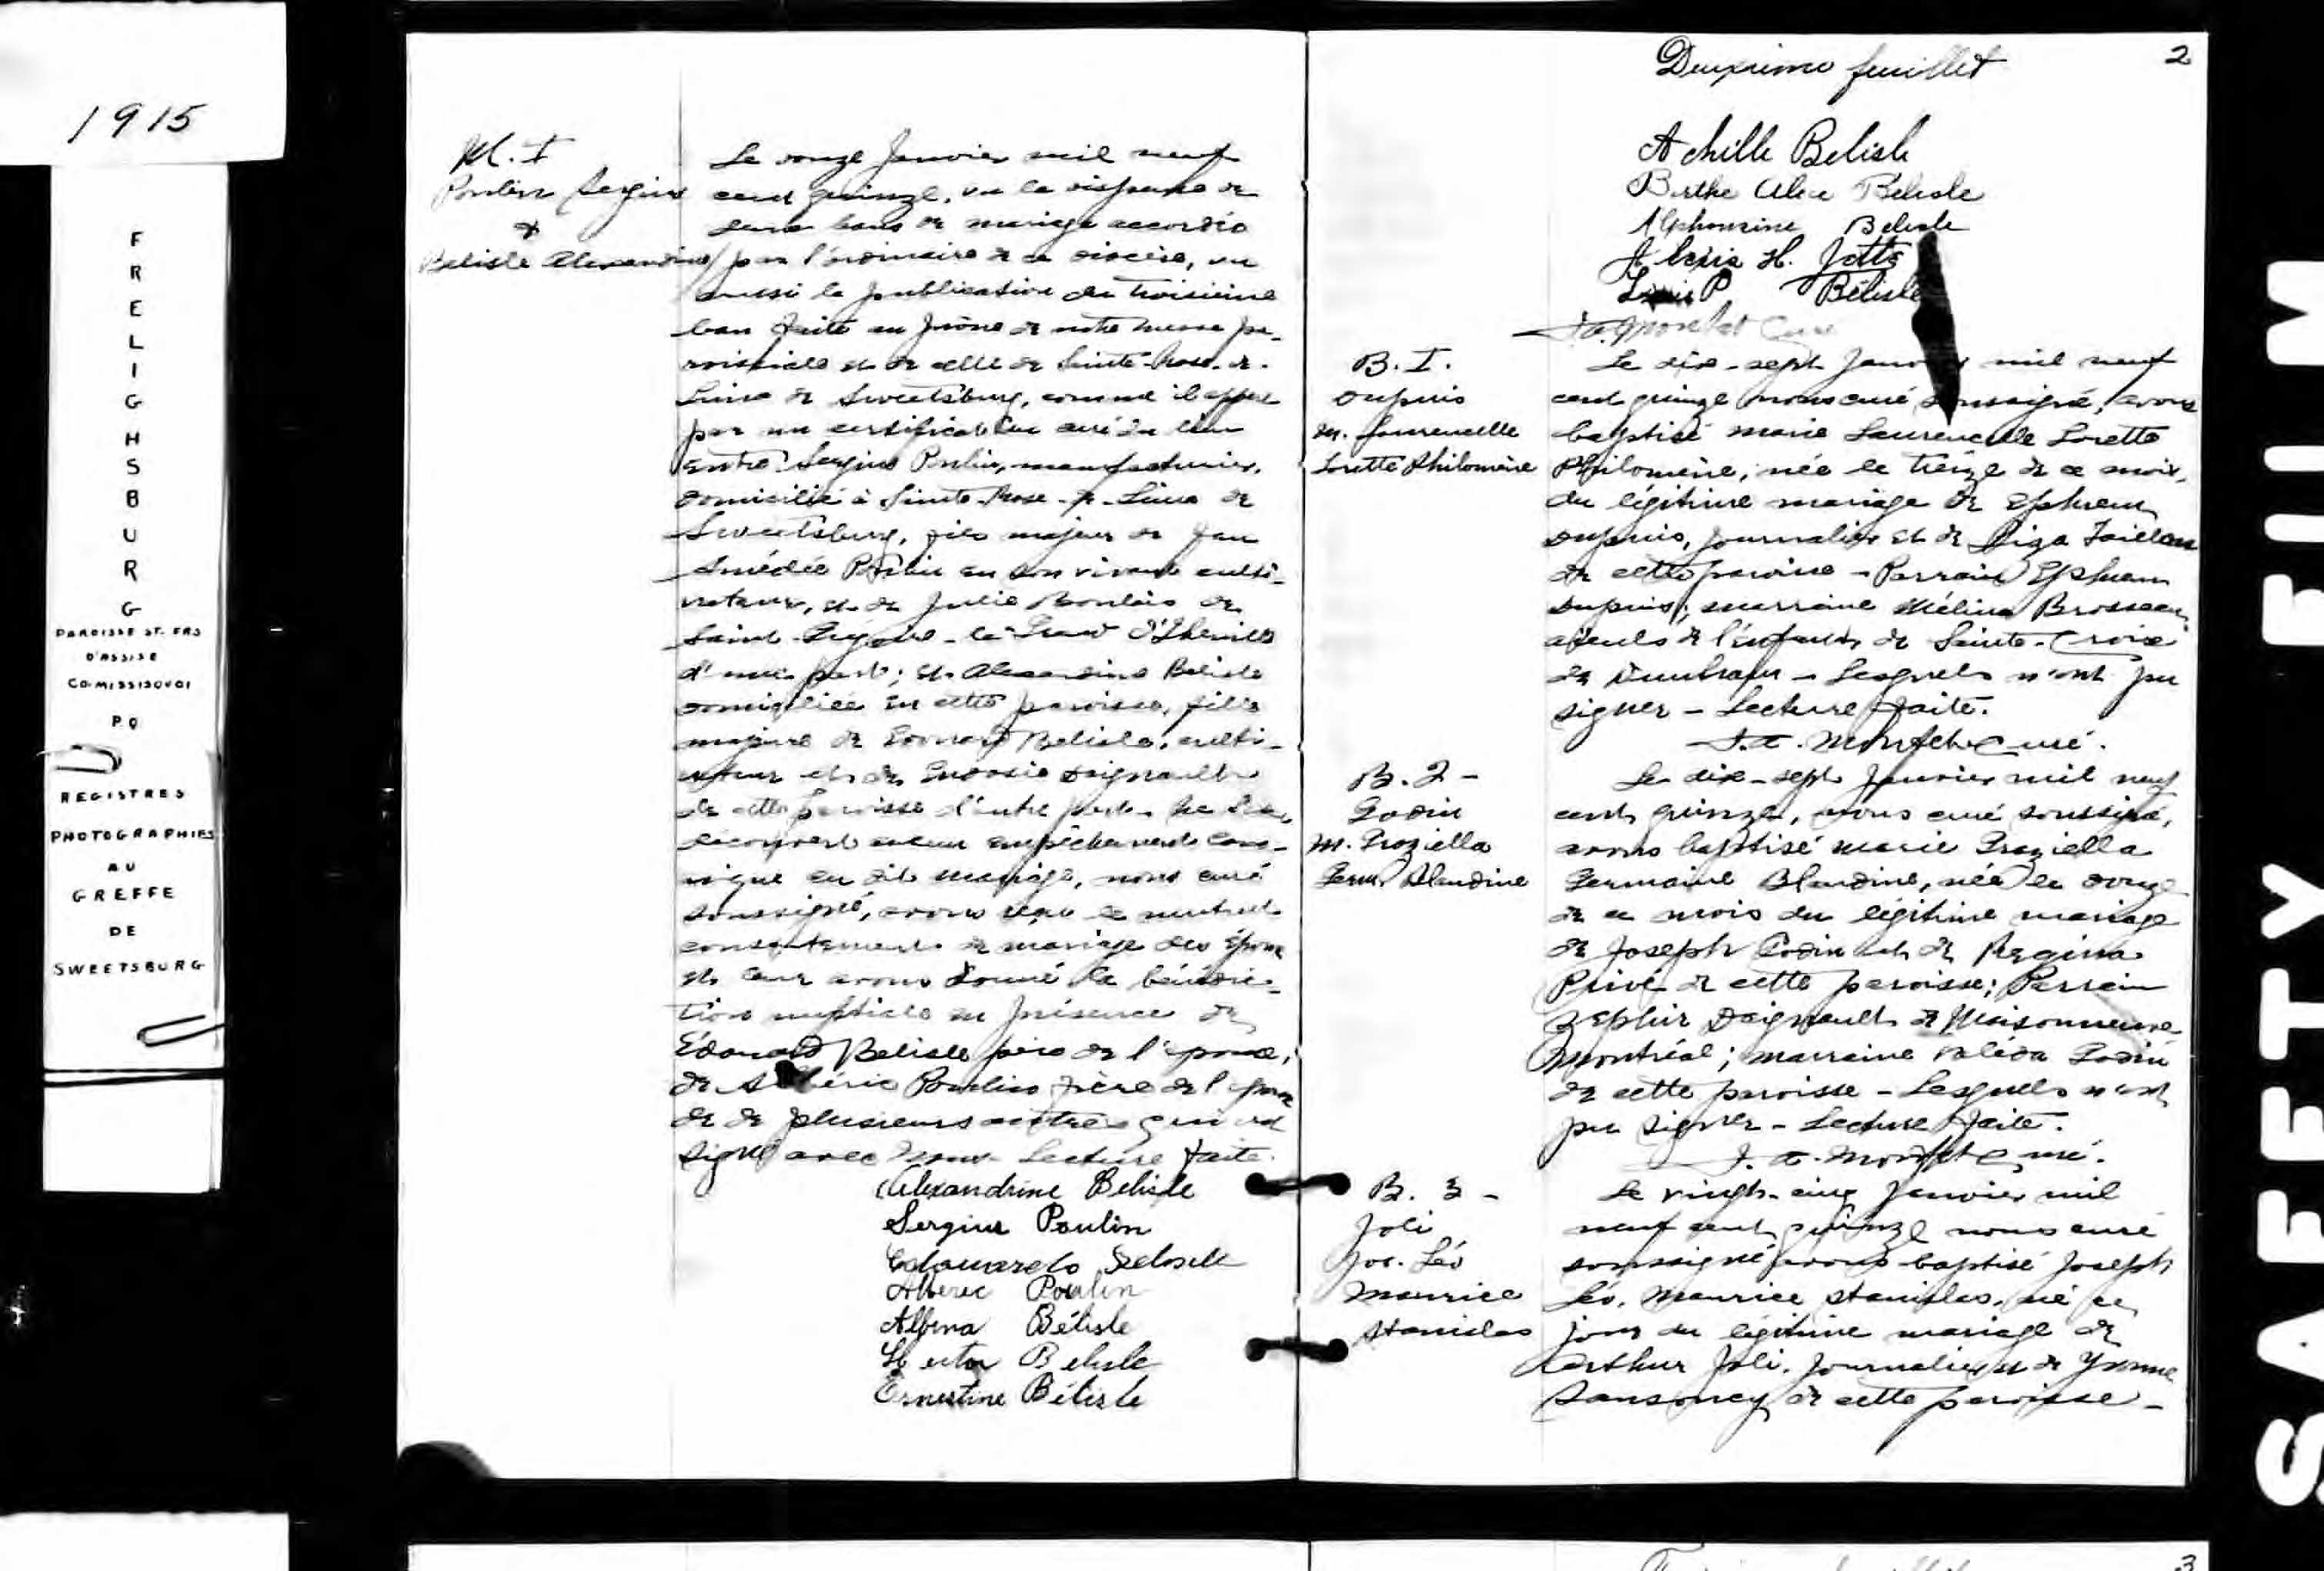 1915
FRELIGHSBURG
PAROISSE ST. FRS
D'ASSISE
CO. MISSISQUOI
P.Q
REGISTRES
PHOTOGRAPHIES
AU
GREFFE
DE
SWEETSBURG
M. I
Poulin Sergius
&
Belisle Alexandrine
Le douze Janvier mil neuf
cent quinze, vu la dispense de
deux bans de mariage accordée
par l'ordinaire de ce diocèse, vu
aussi la publication du troisième
ban faite au prône de notre messe pa-
roissiale et de celle de Sainte-Rose-de-
Lima de Sweetsburg, comme il appert
par un certificat du curé du lieu
entre Sergius Poulin, manufacturier,
domicilié à Sainte-Rose-de-Lima de
Sweetsburg, fils majeur de feu
Amédée Poulin en son vivant culti-
vateur, et de Julie Boulais de
Saint-Grégoire-le-Grand d'Iberville
d'une part; et Alexandrine Belisle
domiciliée en cette paroisse, fille
majeure de Edouard Belisle, culti-
vateur et de Daignault
de cette paroisse d'autre part. Ne s'étant
découvert aucun empêchement cano-
nique au dit mariage, nous curé
soussigné, avons reçu le mutuel
consentement de mariage des époux
et leur avons donné la bénédic-
tion nuptiale en présence de
Édouard Belisle père de l'épouse,
de Albéric Poulin frère de l'époux
et de plusieurs autres qui ont
signé avec nous. Lecture faite.
Alexandrine Belisle
Sergius Poulin
Edouard Belisle
Alberic Poulin
Albina Bélisle
Hector Belisle
Ernestine Bélisle
Deuxième feuillet 2
Achille Belisle
Berthe Alice Belisle
Alphonsine Belisle
H. Jetté
Louis P Bélisle
Curé
B. I.
Dupuis
M. Laurencelle
Lorette Philomène
Le dix-sept Janvier mil neuf
cent quinze nous curé soussigné, avons
baptisé Marie Laurencelle Lorette
Philomène, née le treize de ce mois,
du légitime mariage de Ephrem
Dupuis, journalier et de
de cette paroisse - Parrain Ephrem
Dupuis; marraine Mélina Brosseau,
aïeuls de l'enfant, de Sainte-Croix
de Dunham - Lesquels n'ont pu
signer - Lecture faite.
Curé.
B. 2 -
Godin
M. Graziella
Germ. Blandine
Le dix-sept Janvier mil neuf
cent quinze, nous curé soussigné,
avons baptisé Marie Graziella
Germaine Blandine, née le douze
de ce mois du légitime mariage
de Joseph Godin et de Regina
Privé de cette paroisse; Parrain
Zéphir Daignault de Maisonneuve
Montréal; marraine Godin
de cette paroisse - Lesquels n'ont
pu signer - Lecture faite.
Curé.
B. 3 -
Joli
Jos. Léo
Maurice
Stanislas
Le vingt-cinq Janvier mil
neuf cent quinze nous curé
soussigné avons baptisé Joseph
Léo, Maurice Stanislas, né ce
jour du légitime mariage de
Arthur Joli, journalier et de Yvonne
Sansoucy de cette paroisse -
3
SAFETY FILM